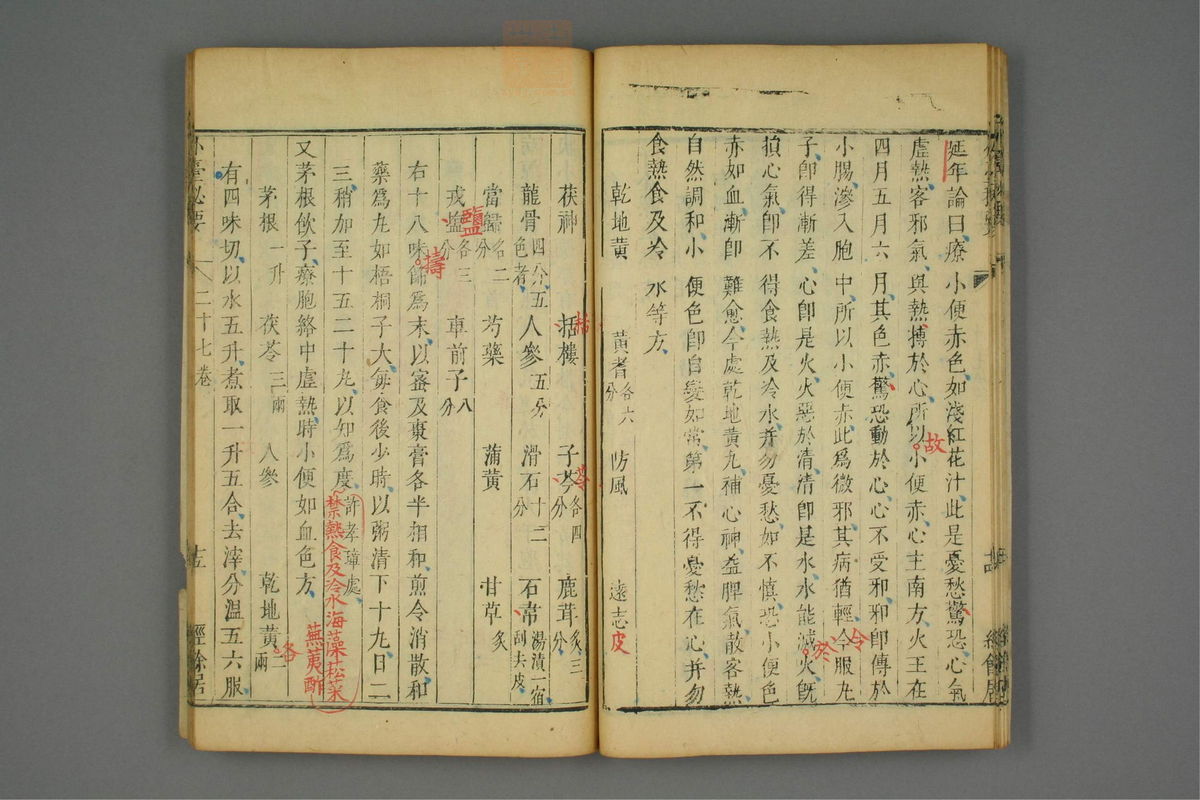 延年論曰療小便赤色如淺紅花汁此是憂愁驚恐心氣
虛熱客邪氣與熱搏於心所以小便赤心主南方火王在
故
四月五月六月其色赤驚恐動於心心不受邪邪卽傳於
小腸滲入胞中所以小便赤此爲微邪其病猶輕今服九
令
子卽得漸差心卽是火火惡於清清卽是水水能滅火旣
於
損心氣卽不得食熱及冷水并勿憂愁如不慎恐小便色
赤如血漸卽難愈今處乾地黃丸補心神益脾氣散客熱
自然調和小便色卽自變如常第一不得憂愁在心并勿
食熱食及冷水等方
乾地黃 黃耆各六分 防風 遠志皮
茯神 括樓 子芩各四分 鹿茸炙三分
栝 苓
龍骨四分五色者 人參五分 滑石十二分 石韋湯漬一宿刮去皮
當歸各二分 芍藥 蒲黃 甘草炙
戎塩各三分 車前子八分
鹽
右十八味篩爲末以蜜及棗膏各半相和煎令消散和
擣
藥爲丸如梧桐子大每食後少時以粥清下十九日二
三稍加至十五二十丸以知爲度許孝璋處
禁熱食及冷水海藻菘菜
蕪荑酢
又茅根飲子療胞絡中虛熱時小便如血色方
茅根一升 茯苓三兩 人參 乾地黃二兩
各
右四味切以水五升煮取一升五合去滓分溫五六服
二十七卷
經餘居